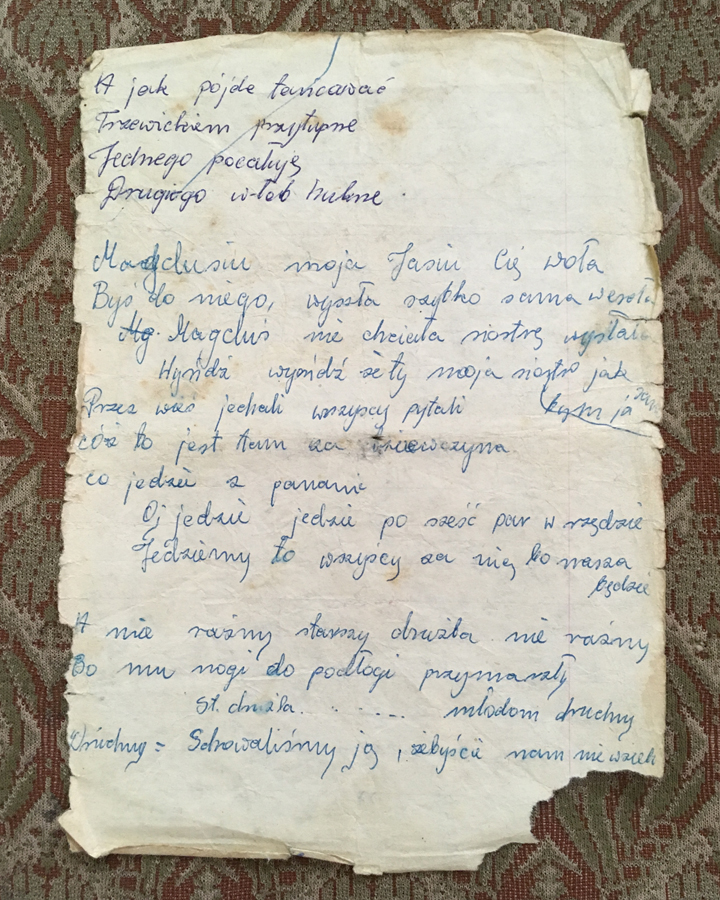 A jak pójde tańcować
Trzewickiem przytupne
Jednego pocałuję
Drugiego w łeb hukne.
Magdusiu moja Jasiu Cię woła
Byś do niego, wyszła szybko sama wesoła
Mg. Magduś nie chciała siostrę wysłała
wyńdź że ty moja siostro jak
bym ja sama
Przez wieś jechali wszyscy pytali
cóż to jest tam za dziewczyna
co jedzie z panami
Oj jedzie jedzie po sześć par w rzędzie
Jedziemy to wszyscy za nią bo nasza
będzie
A nie raźny starszy drużba nie raźny
Bo mu nogi do podłogi przymarzły
St. drużba. . . . . . . młodom druchny
Druchny = Schowaliśmy ją, żebyście nam nie wzieli